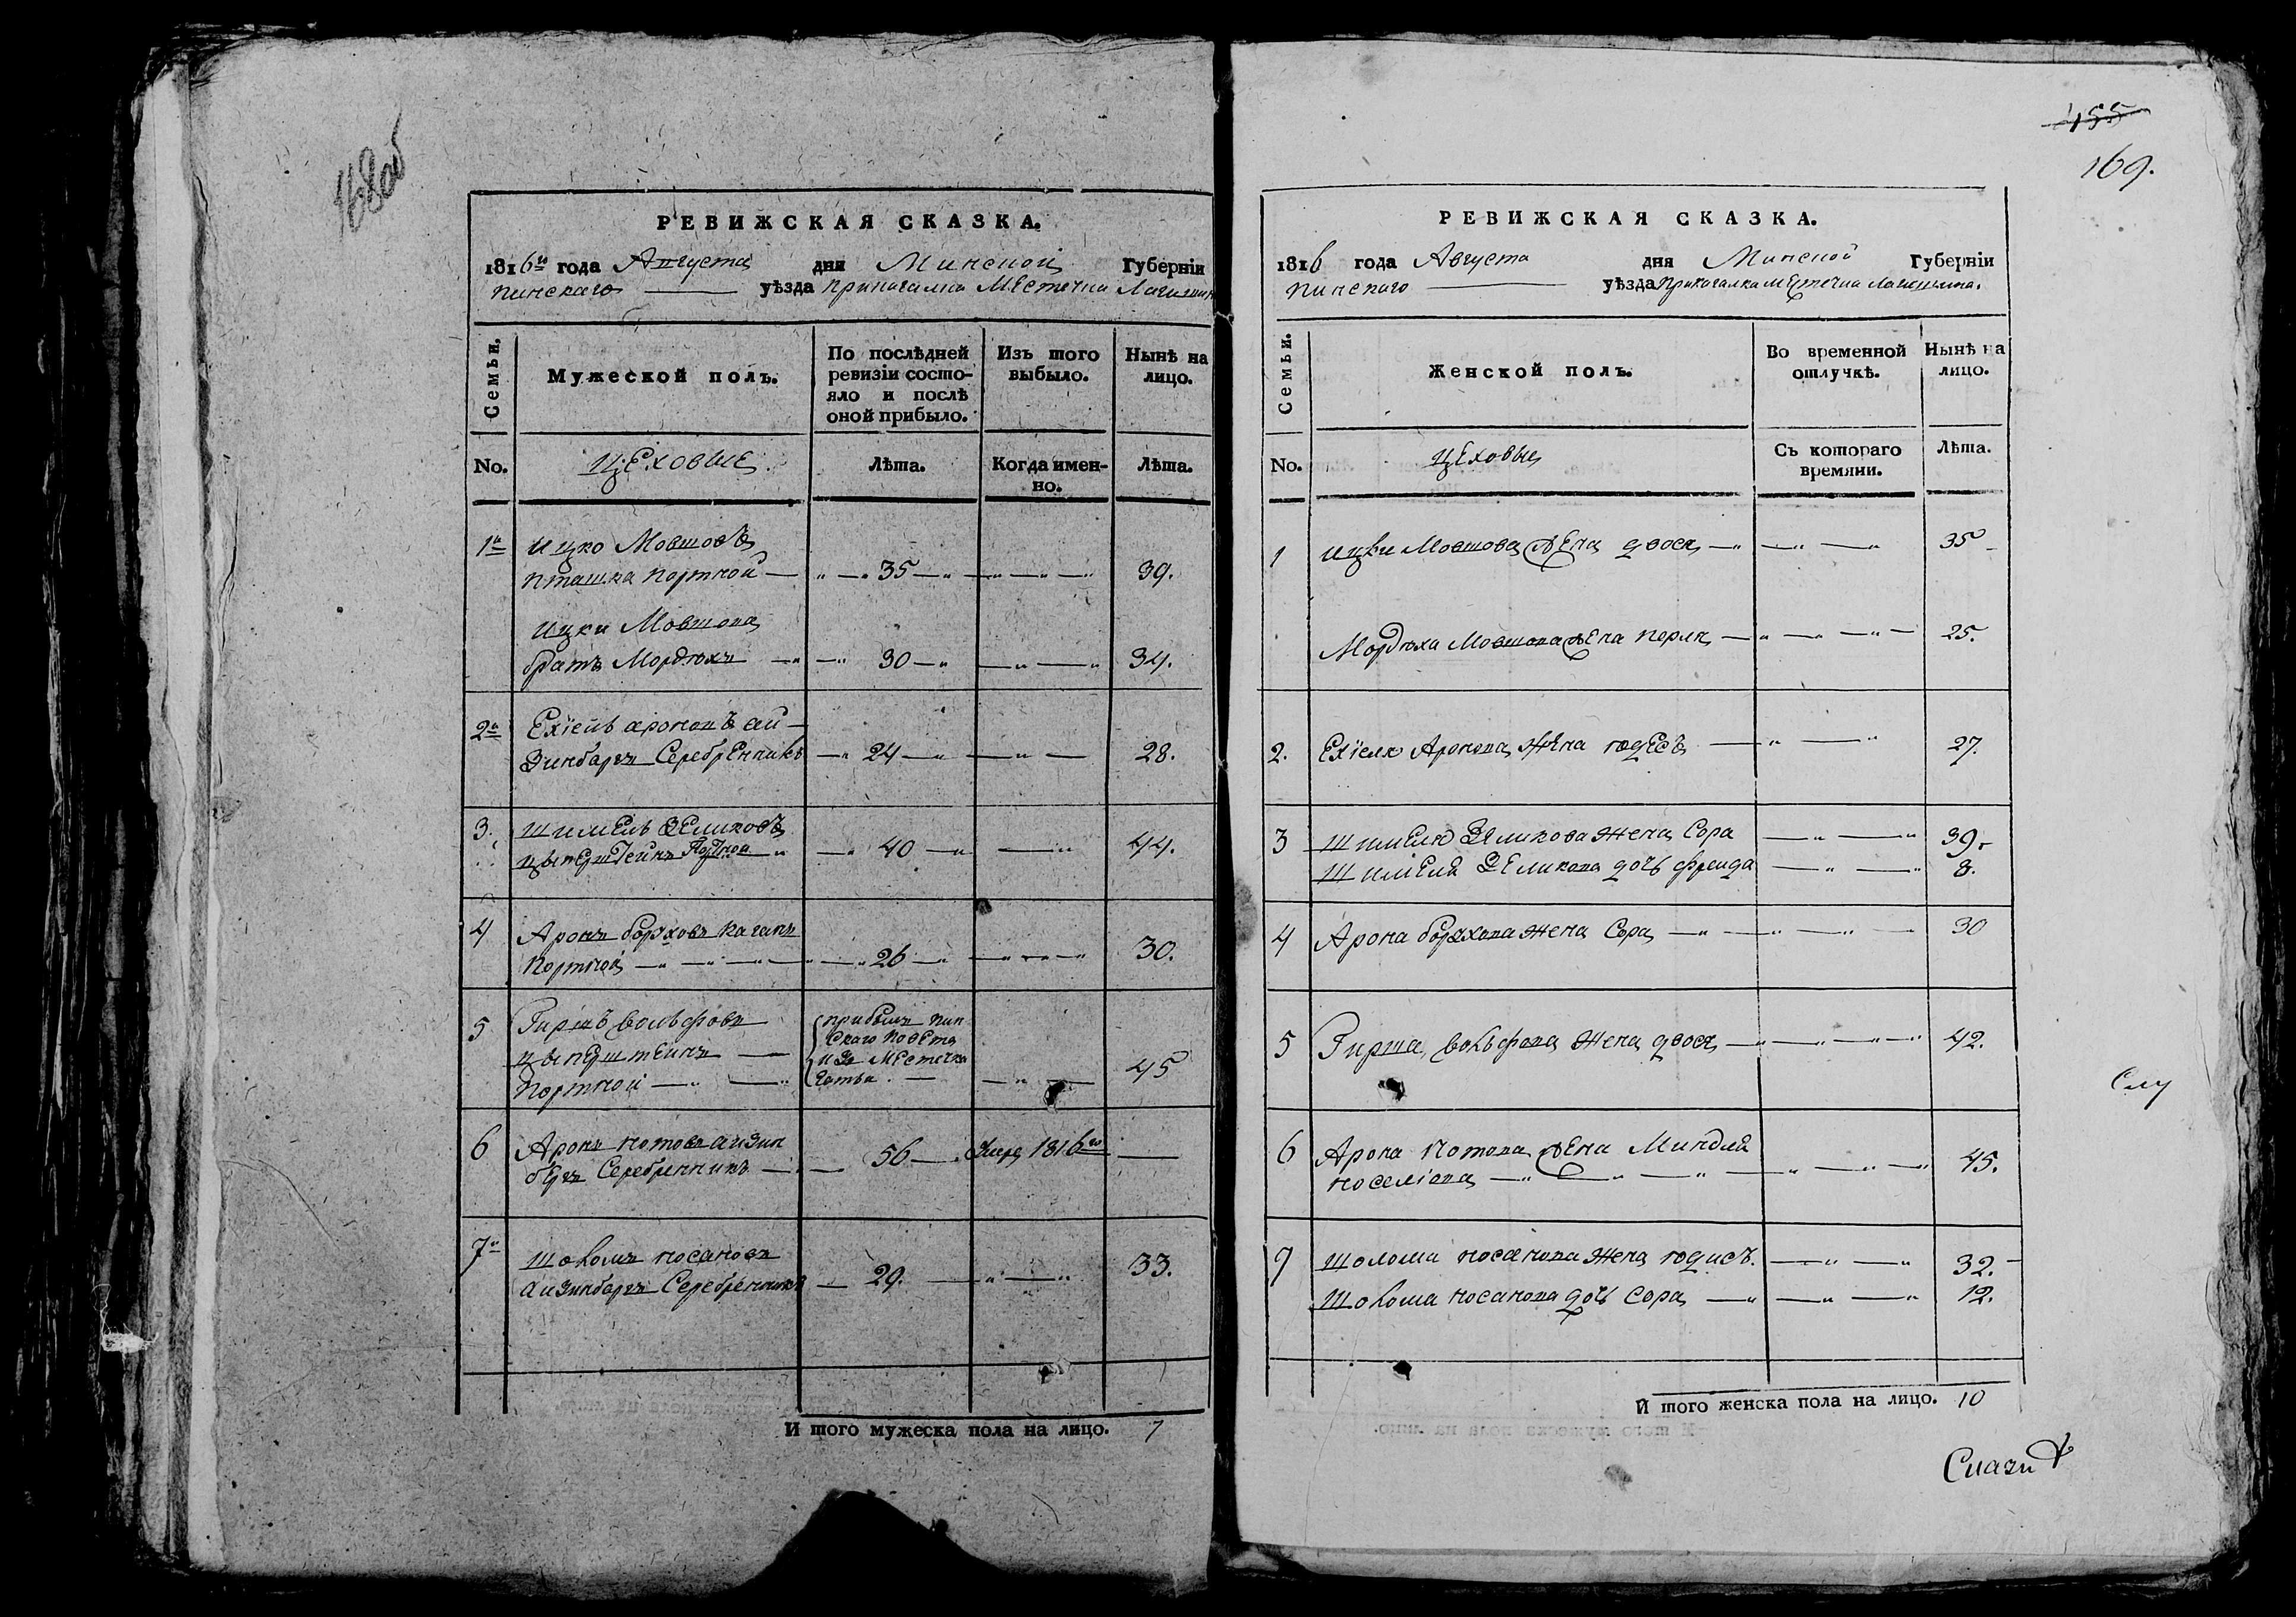 168об
РЕВИЖСКАЯ СКАЗКА.
1816го года Августа дня Минской Губернїи
Пинскаго уѣзда Прикагалка Местечка Логишин
Семьи.
Мужеской полъ.
По послѣдней
ревизїи состо-
яло и послѣ
оной прибыло.
Изъ того
выбыло.
Нынѣ на
лицо.
No.
Цеховые
Лѣта.
Когда имен-
но.
Лѣта.
1й Ицко Мовшовъ
Пташка Портной — 35 — 39.
Ицки Мовшова
братъ Мордухъ — 30 — 34.
2й Ехїель Ароновъ Ай-
зинбаргъ Серебренникъ — 24 — 28.
3. Шимель Зеликовъ
Цыперштейнъ Портной — 40 — 44.
4 Аронъ борховъ Каганъ
Портной — 26 — 30.
5 Гиршъ Вольфовъ
Цыперштеинъ —
Портной — 45
прибылъ Пин
скаго Повета
изъ Местечка
6 Аронъ Нотовъ Аизин
бергъ Серебренникъ — 56 — Умре 1816го —
7й Шоломъ Носановъ
Аизинбаргъ Серебренникъ — 29. — 33.
И того мужеска пола на лицо. 7
455
169.
РЕВИЖСКАЯ СКАЗКА.
1816 года Августа дня Минской Губернїи
Пинскаго уѣзда Прикагалка Местечка Логишина.
Семьи.
Женской полъ.
Во временной
отлучкѣ.
Нынѣ на
лицо.
No.
Цеховые
Съ котораго
времяни.
Лѣта.
1 Ицки Мовшова Жена Двося — 35
Мордуха Мовшова Жена Перля — 25.
2. Ехїеля Аронова Жена Годесъ — 27.
3 Шимеля Зеликова Жена Сора — 39.
Шимеля Зеликова дочь Фреида — 8.
4 Арона борхова Жена Сора — 30
5 Гирша Вольфова Жена Двося — 42.
6 Арона Нотова Жена Миндля
Носелїова — 45.
7 Шолома Носанова Жена Годисъ. — 32.
Шолома Носанова дочь Сора — 12.
И того женска пола на лицо. 10